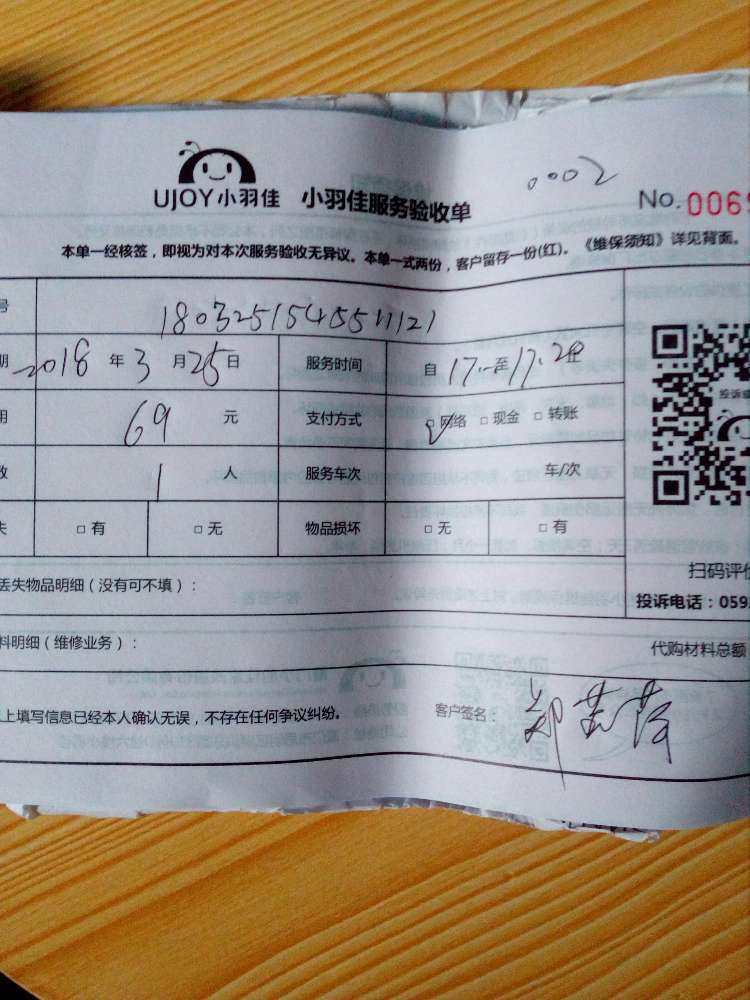 UJOY小羽佳 小羽佳服务验收单
0002
No. 0069
本单一经核签，即视为对本次服务验收无异议。本单一式两份，客户留存一份(红)。《维保须知》详见背面。
号 18032515455511121
期 2018 年 3 月 25 日 服务时间 自 17:-至17:20止
用 69 元 支付方式 ☑网络 □现金 □转账
数 1 人 服务车次 车/次
失 □有 □无 物品损坏 □无 □有
投诉或
扫码评价
丢失物品明细（没有可不填）：
投诉电话：059
料明细（维修业务）：
代购材料总额
上填写信息已经本人确认无误，不存在任何争议纠纷。 客户签名：